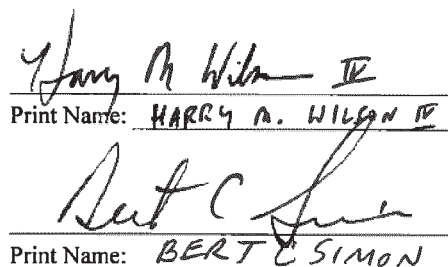 Harry M Wilson IV
Print Name: HARRY M. WILSON IV
Bert C Simon
Print Name: BERT C SIMON